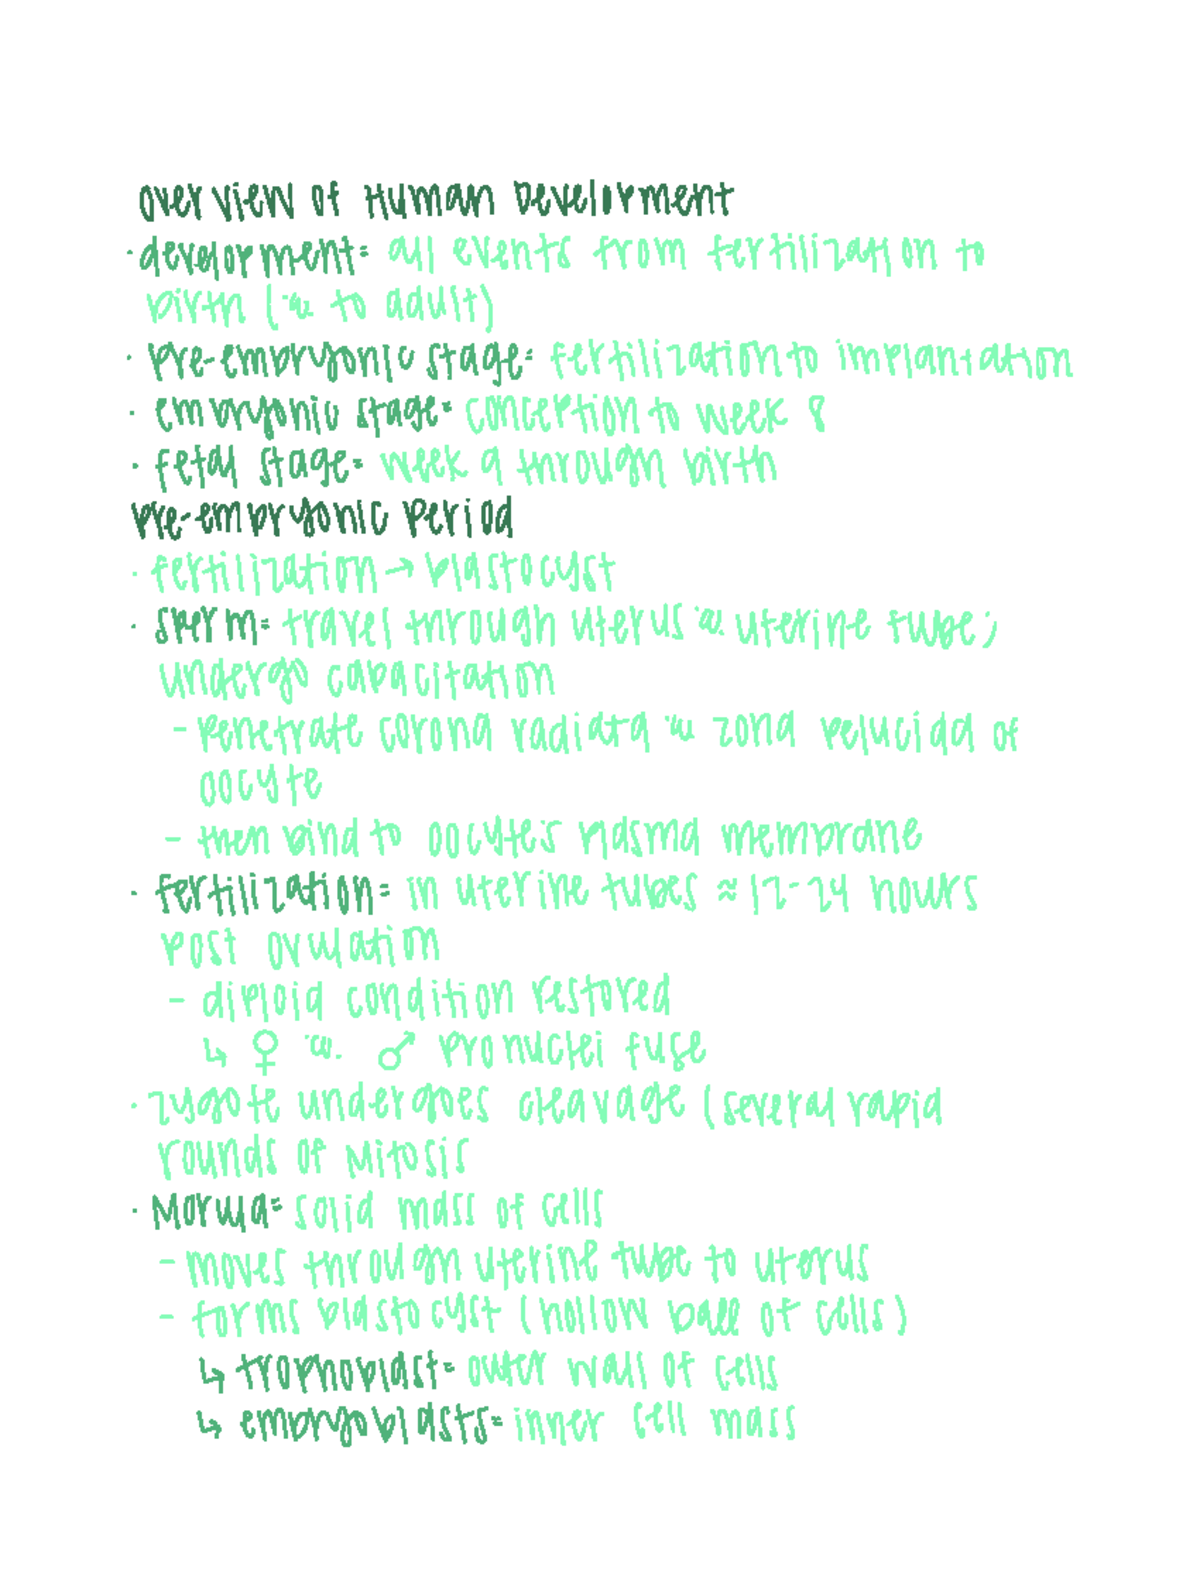 Overview of Human Development
· development= all events from fertilization to
birth (& to adult)
· pre-embryonic stage= fertilization to implantation
· embryonic stage= conception to week 8
· fetal stage= week 9 through birth
Pre-embryonic Period
· fertilization → blastocyst
· sperm= travel through uterus & uterine tube;
undergo capacitation
- penetrate corona radiata & zona pelucida of
oocyte
- then bind to oocyte's plasma membrane
· fertilization= in uterine tubes ≈ 12-24 hours
post ovulation
- diploid condition restored
↳ ♀ & ♂ pronuclei fuse
· zygote undergoes cleavage (several rapid
rounds of mitosis
· Morula= solid mass of cells
- moves through uterine tube to uterus
- forms blastocyst (hollow ball of cells)
↳ trophoblast= outer wall of cells
↳ embryoblasts= inner cell mass